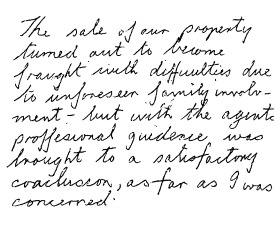 The sale of our property
turned out to become
fraught with difficulties due
to unforeseen family involv-
ment - but with the agents
proffesional guidence was
brought to a satisfactory
conclusion, as far as I was
concerned.